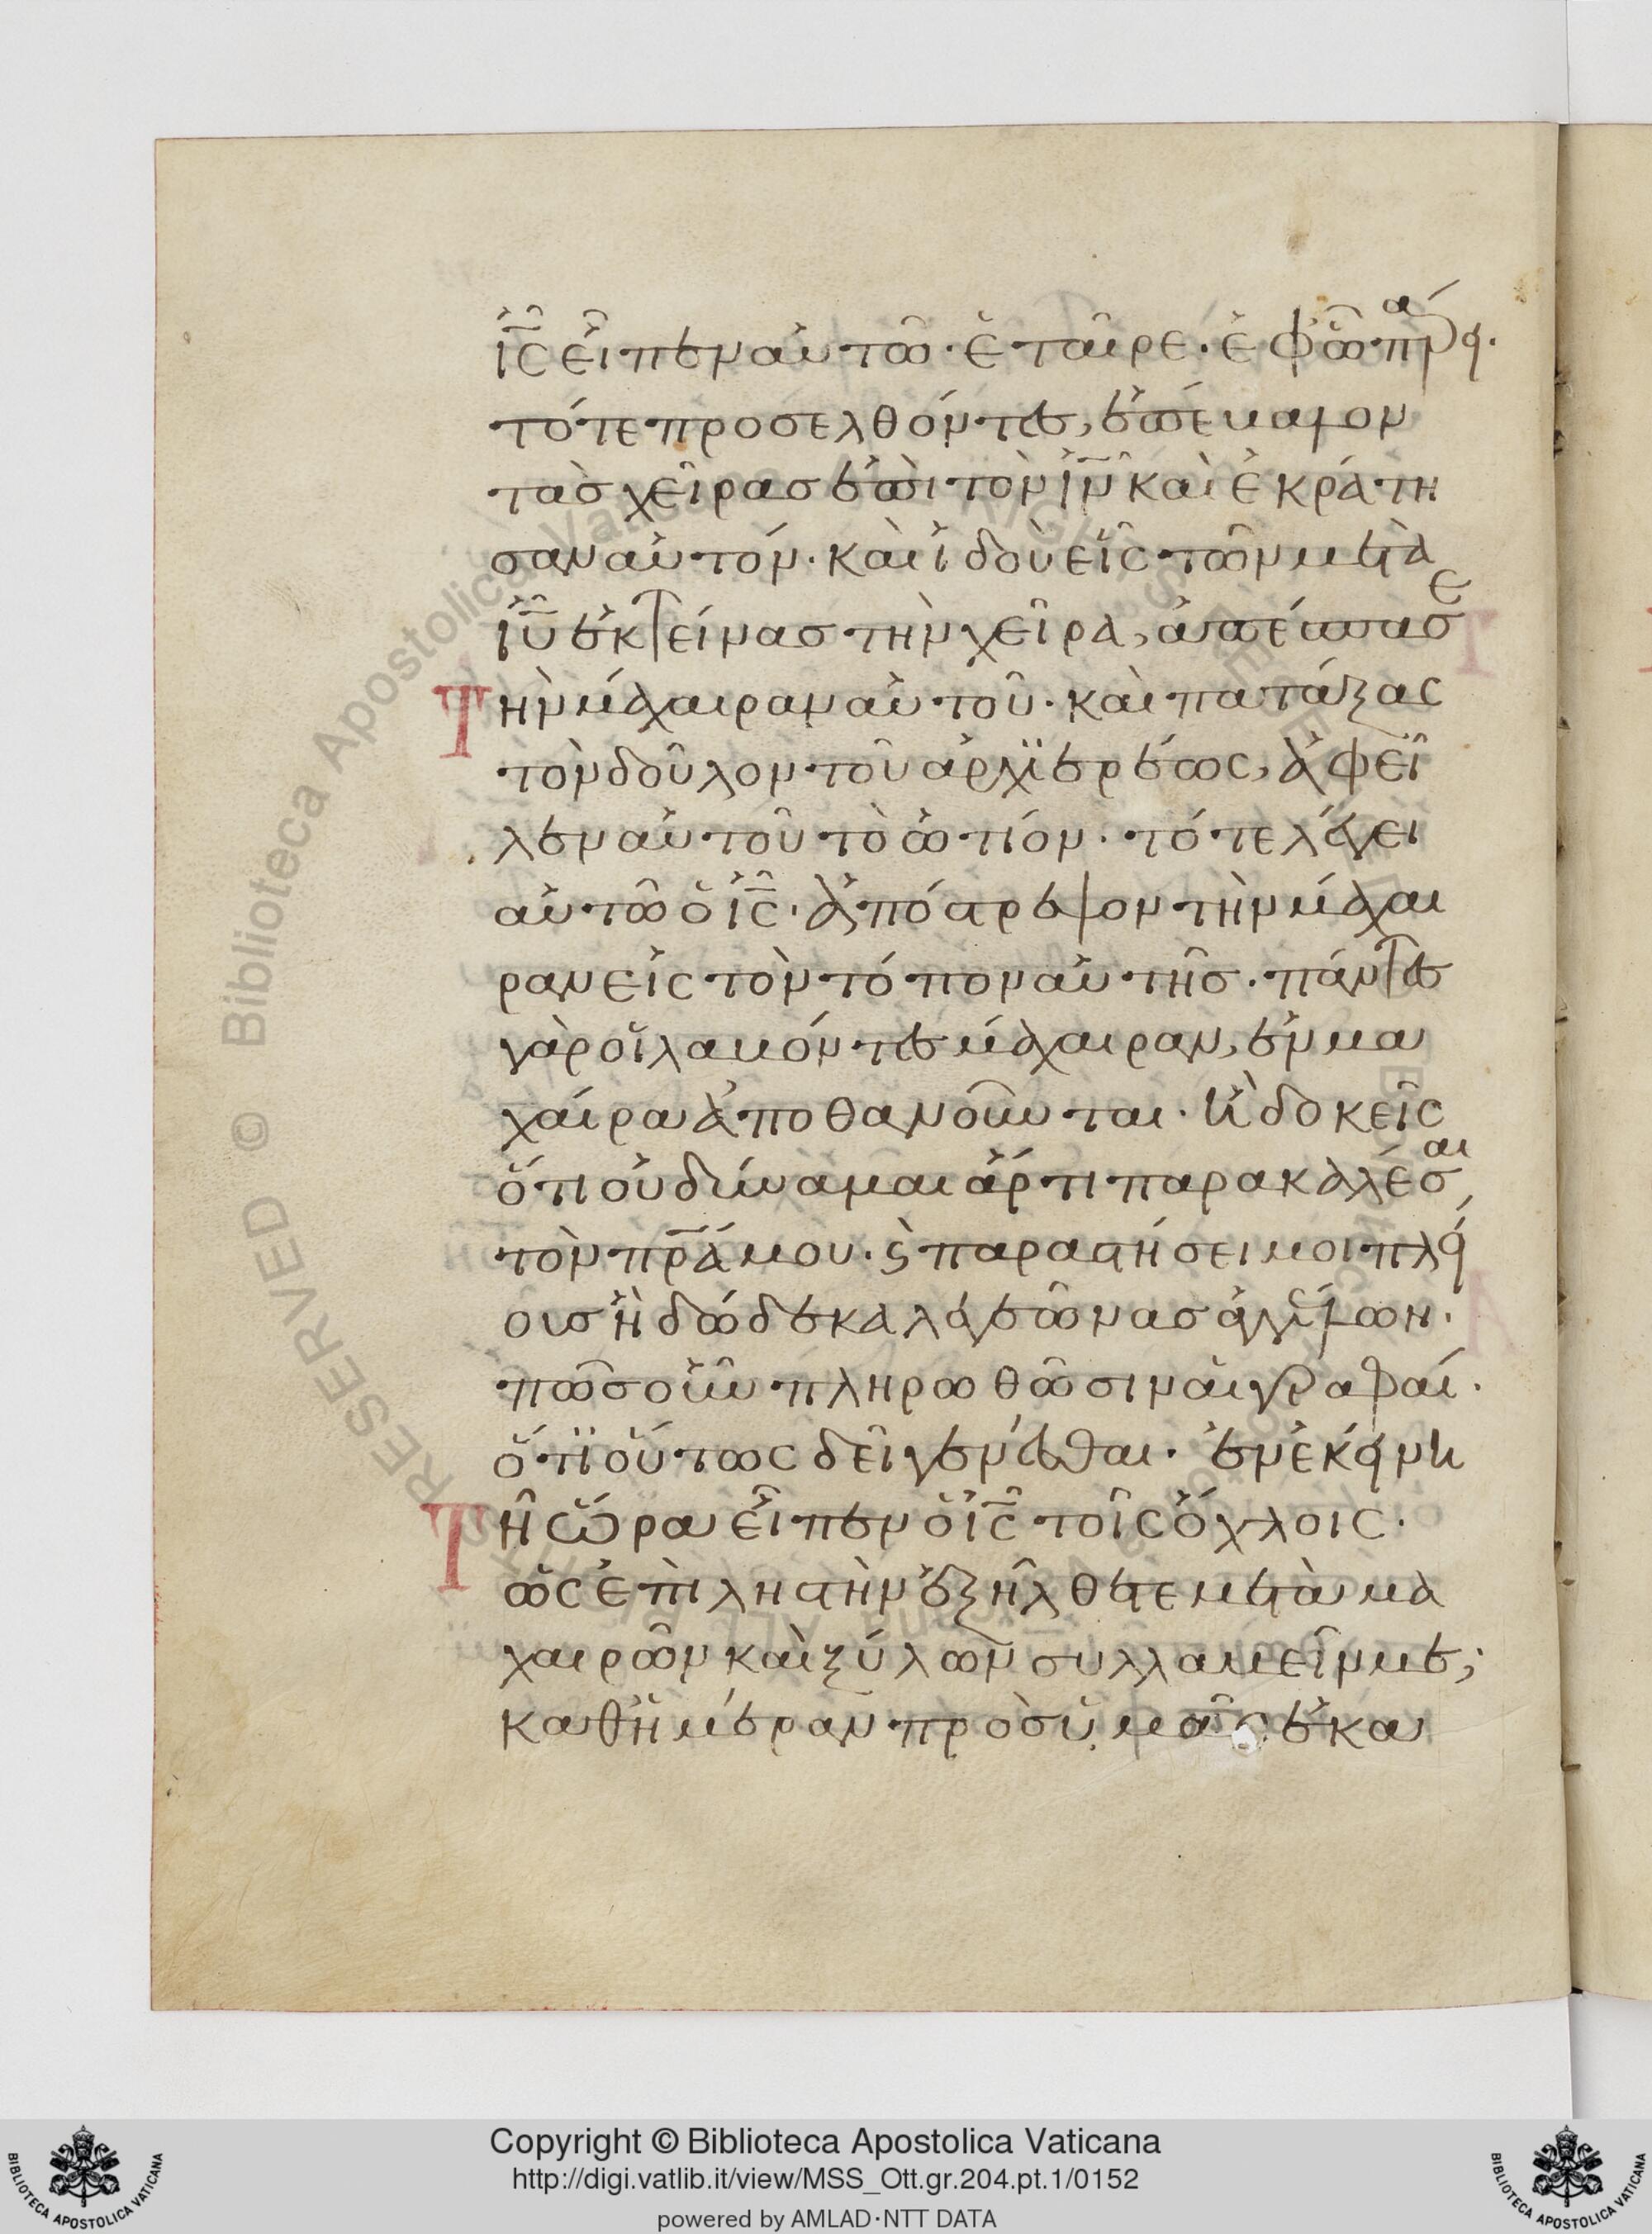 ἰς εἶπεν αὐτῶ· ἑταῖρε· ἐφ ὧ πάρει·
τότε προσελθόντες, ἐπέβαλον
τὰσ χεῖρασ ἐπὶ τὸν ἰν καὶ ἐκράτη
σαν αὐτόν· καὶ ἰδοὺ εἷς τῶν μετὰ
ἰυ ἐκτείνασ τὴν χεῖρα, ἀπέσπασε
Τὴν μάχαιραν αὐτοῦ· καὶ πατάξας
τὸν δοῦλον τοῦ ἀρχϊερέως, ἀφεῖ
λεν αὐτοῦ τὸ ὠτίον· τότε λέγει
αὐτῶ ὁ ἰς· ἀπόστρεψον τὴν μάχαι
ραν εἰς τὸν τόπον αὐτῆσ· πάντες
γὰρ οἱ λαβόντες μάχαιραν, ἐν μα
χαίρα ἀποθανοῦνται· ἢ δοκεῖς
ὅτι οὐ δύναμαι ἄρτι παρακαλέσαι
τὸν πρα μου· ϗ παραστήσει μοι πλεί
ουσ ἢ δώδεκα λεγεῶνασ ἀγγέλων·
πῶσ οὖν πληρωθῶσιν αἱ γραφαί·
ὅτϊ οὕτως δεῖ γενέσθαι· ἐν ἐκείνη
Τῆ ὥρα εἶπεν ὁ ἰς τοῖς ὄχλοις·
ὡς ἐπὶ ληστὴν ἐξήλθετε μετὰ μα
χαιρῶν καὶ ξύλων συλλαβεῖν με;
καθ ἡμέραν πρὸσ ὑμᾶς ἐκα
Copyright © Biblioteca Apostolica Vaticana
http://digi.vatlib.it/view/MSS_Ott.gr.204.pt.1/0152
powered by AMLAD·NTT DATA